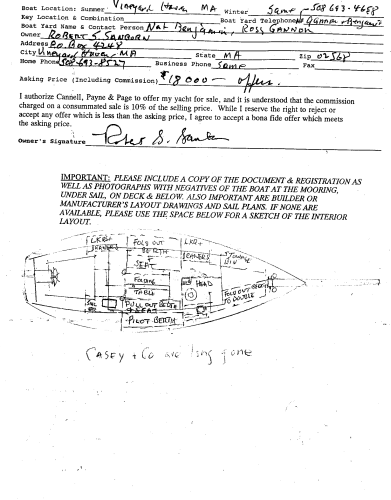 Boat Location: Summer Vineyard Haven MA Winter Same - 508 693-4658
Key Location & Combination Boat Yard Telephone Gannon + Benjamin
Boat Yard Name & Contact Person Nat Benjamin, Ross Gannon
Owner Robert S Sanborn
Address P.O. Box 4248
City Vineyard Haven MA State MA Zip 02568
Home Phone 508-693-8527 Business Phone Same Fax
Asking Price (Including Commission) $18,000 - offers.
I authorize Cannell, Payne & Page to offer my yacht for sale, and it is understood that the commission
charged on a consummated sale is 10% of the selling price. While I reserve the right to reject or
accept any offer which is less than the asking price, I agree to accept a bona fide offer which meets
the asking price.
Owner's Signature
IMPORTANT: PLEASE INCLUDE A COPY OF THE DOCUMENT & REGISTRATION
AS WELL AS PHOTOGRAPHS WITH NEGATIVES OF THE BOAT AT THE MOORING,
UNDER SAIL, ON DECK & BELOW. ALSO IMPORTANT ARE BUILDER OR
MANUFACTURER'S LAYOUT DRAWINGS AND SAIL PLANS. IF NONE ARE
AVAILABLE, PLEASE USE THE SPACE BELOW FOR A SKETCH OF THE INTERIOR
LAYOUT.
LKR
FOLD OUT
BERTH
+
SEAT
LKR
STORAGE
BIN
FOLDING
TABLE
HEAD
PULL OUT BERTH
+ SEAT
PILOT BERTH
FOLD OUT BERTH
TO DOUBLE
CASEY + Co are long gone